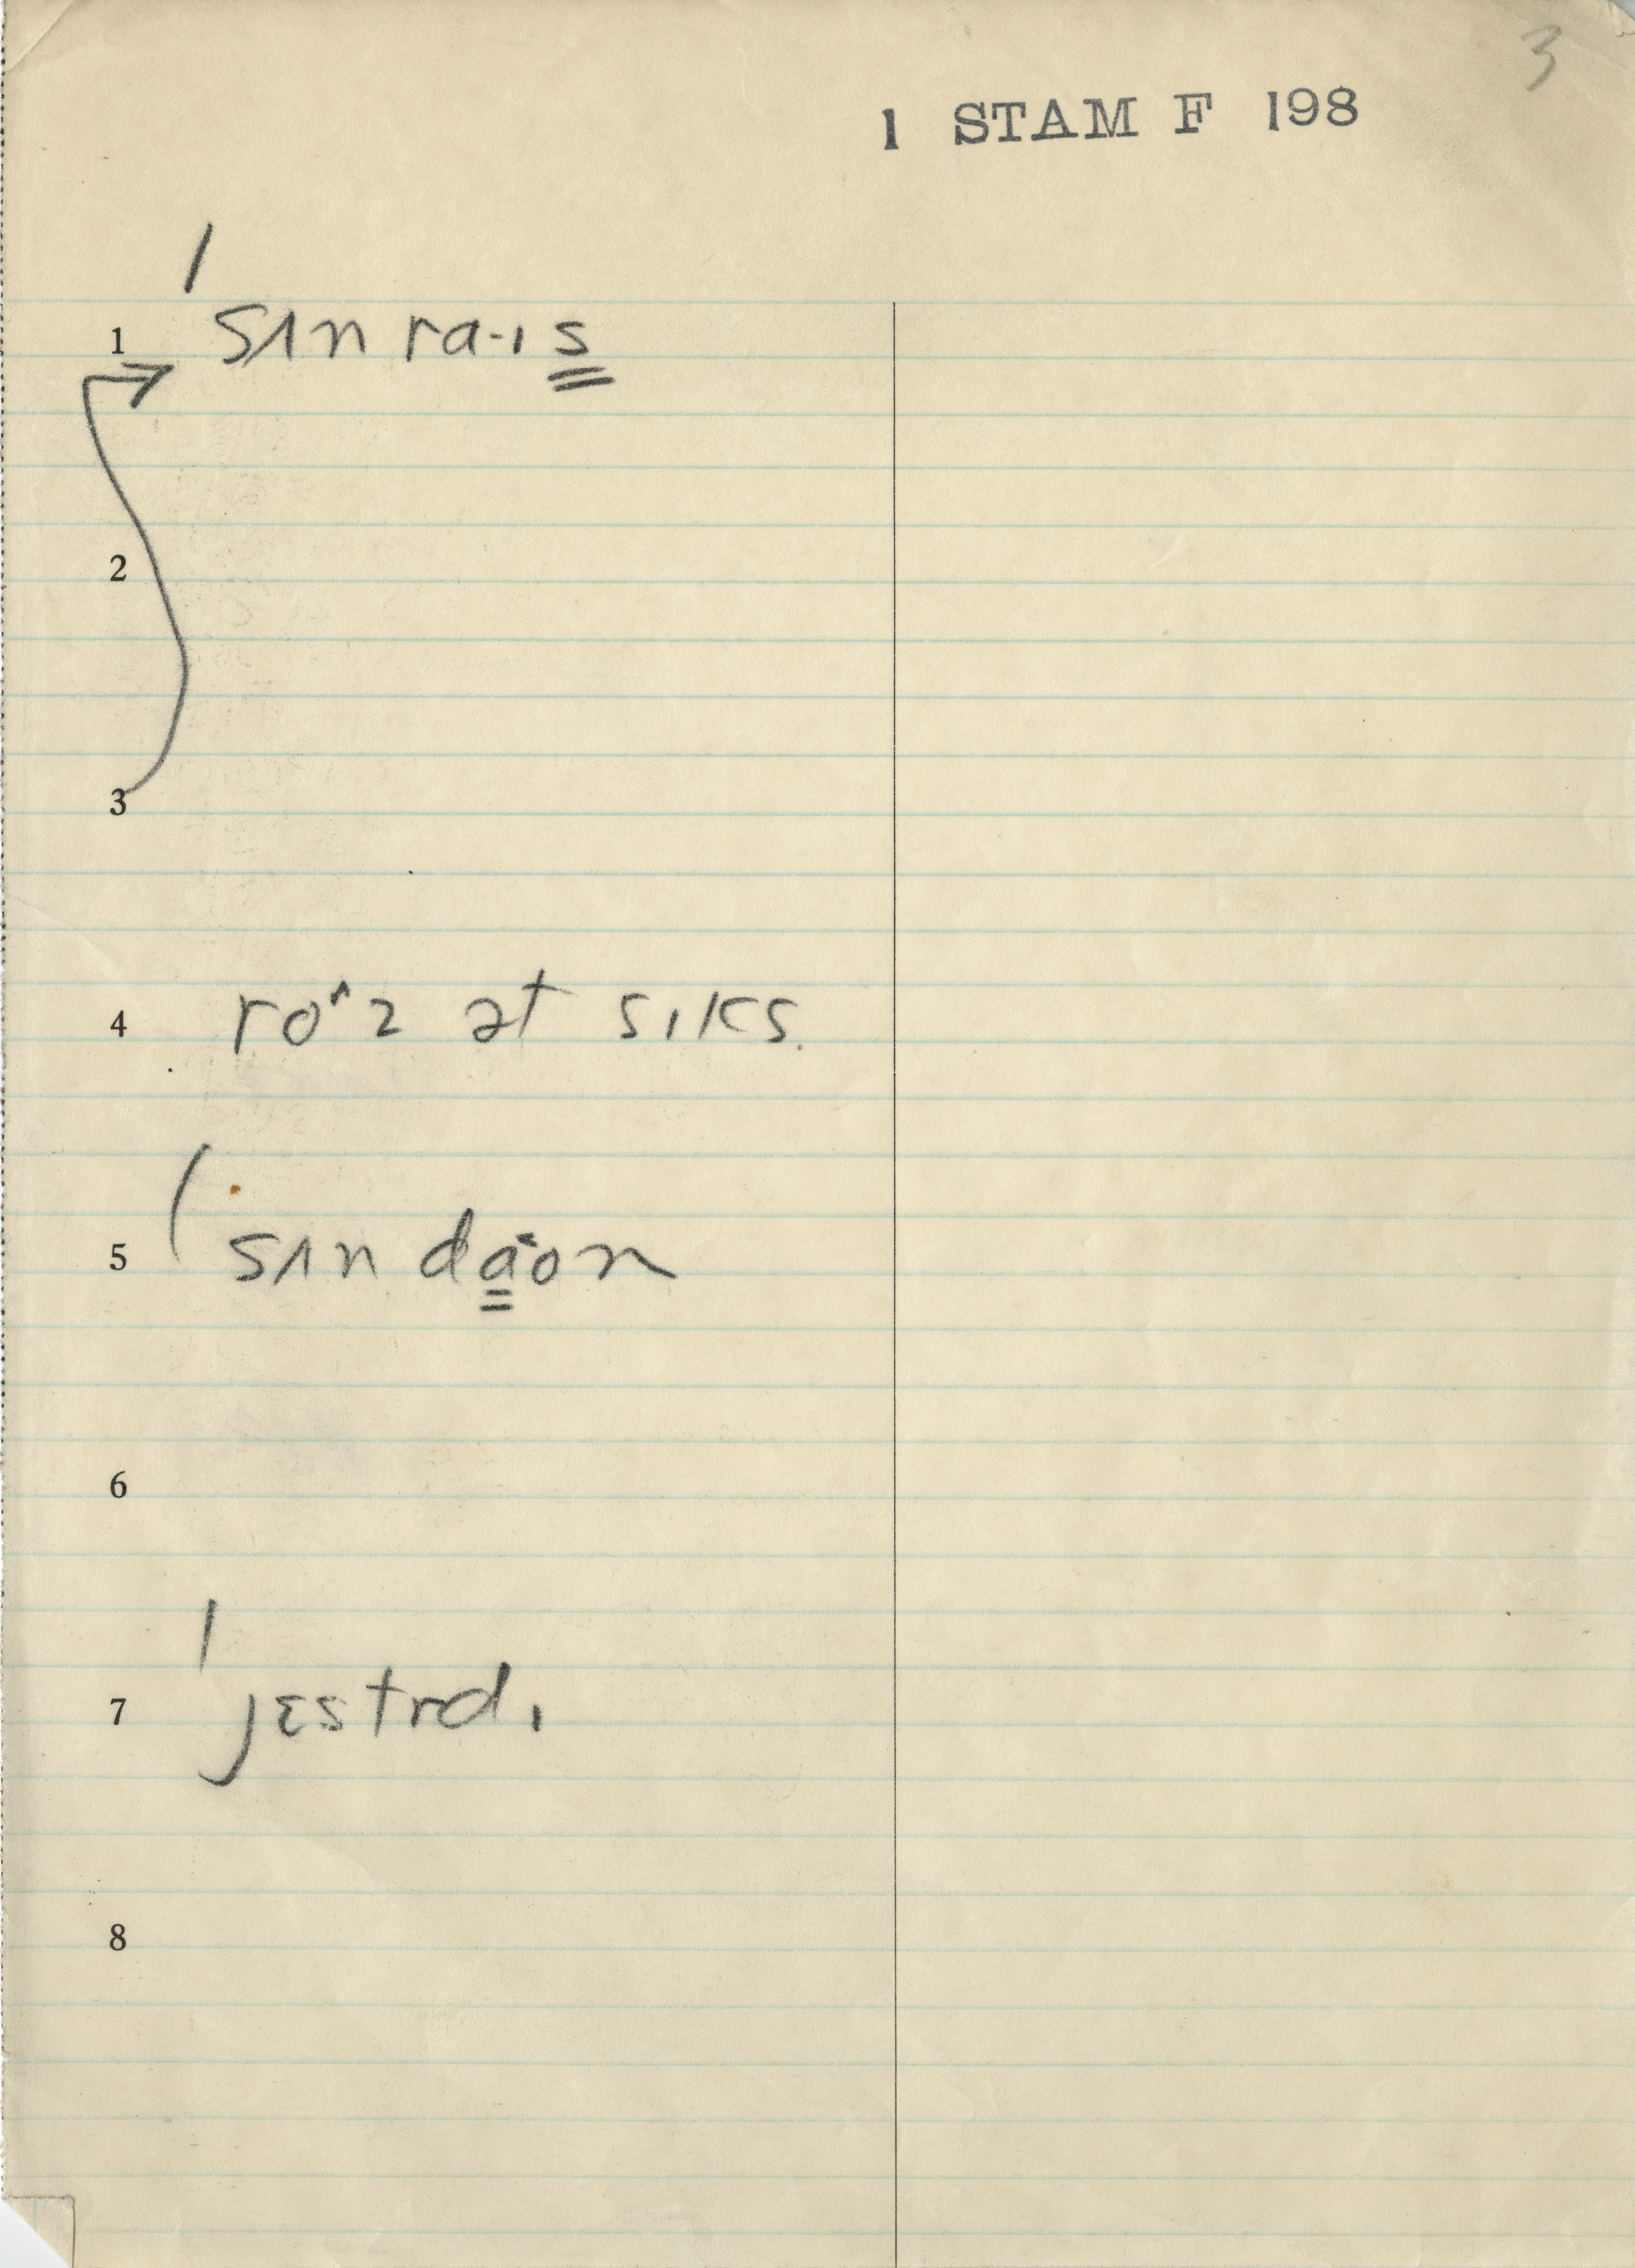 3
1 STAM F 198
1 ˈsʌn ra·ɪs
2
3
4 ro^z ət sɪks.
5 ˈsʌn daˑon
6
7 ˈjɛstrdɪ
8